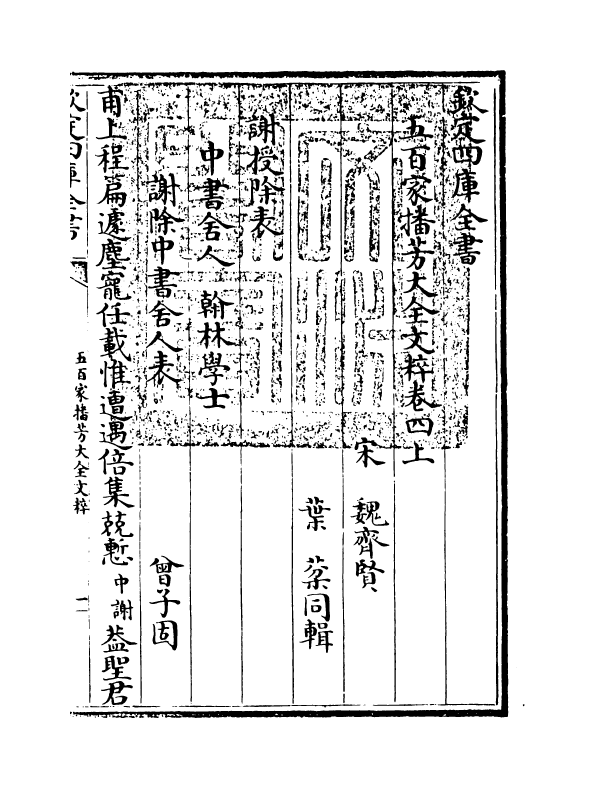 欽定四庫全書
五百家播芳大全文粹卷四上
宋 魏齊賢
葉棻同輯
謝授除表
中書舍人 翰林學士
謝除中書舍人表 曾子固
甫上程篇遽塵寵任載惟遭遇倍集兢慙中謝蓋聖君
欽定四庫全書
五百家播芳大全文粹
一